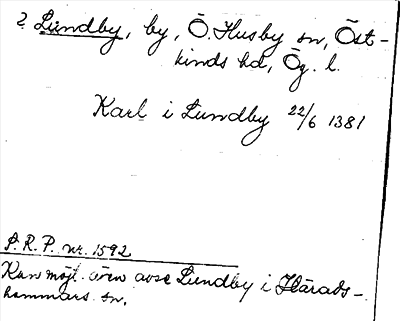 ? Lundby, by, Ö. Husby sn, Öst-
kinds hd, Ög. l.
Karl i Lundby 22/6 1381
S.R.P. nr. 1592
Kan möjl. även avse Lundby i Härads-
hammars sn.